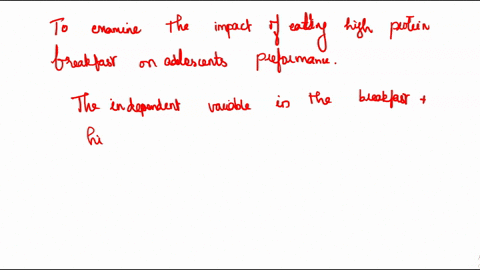 To examine the impact of eating high protein
breakfast on adolescents preformance.
The independent variable is the breakfast +
hi